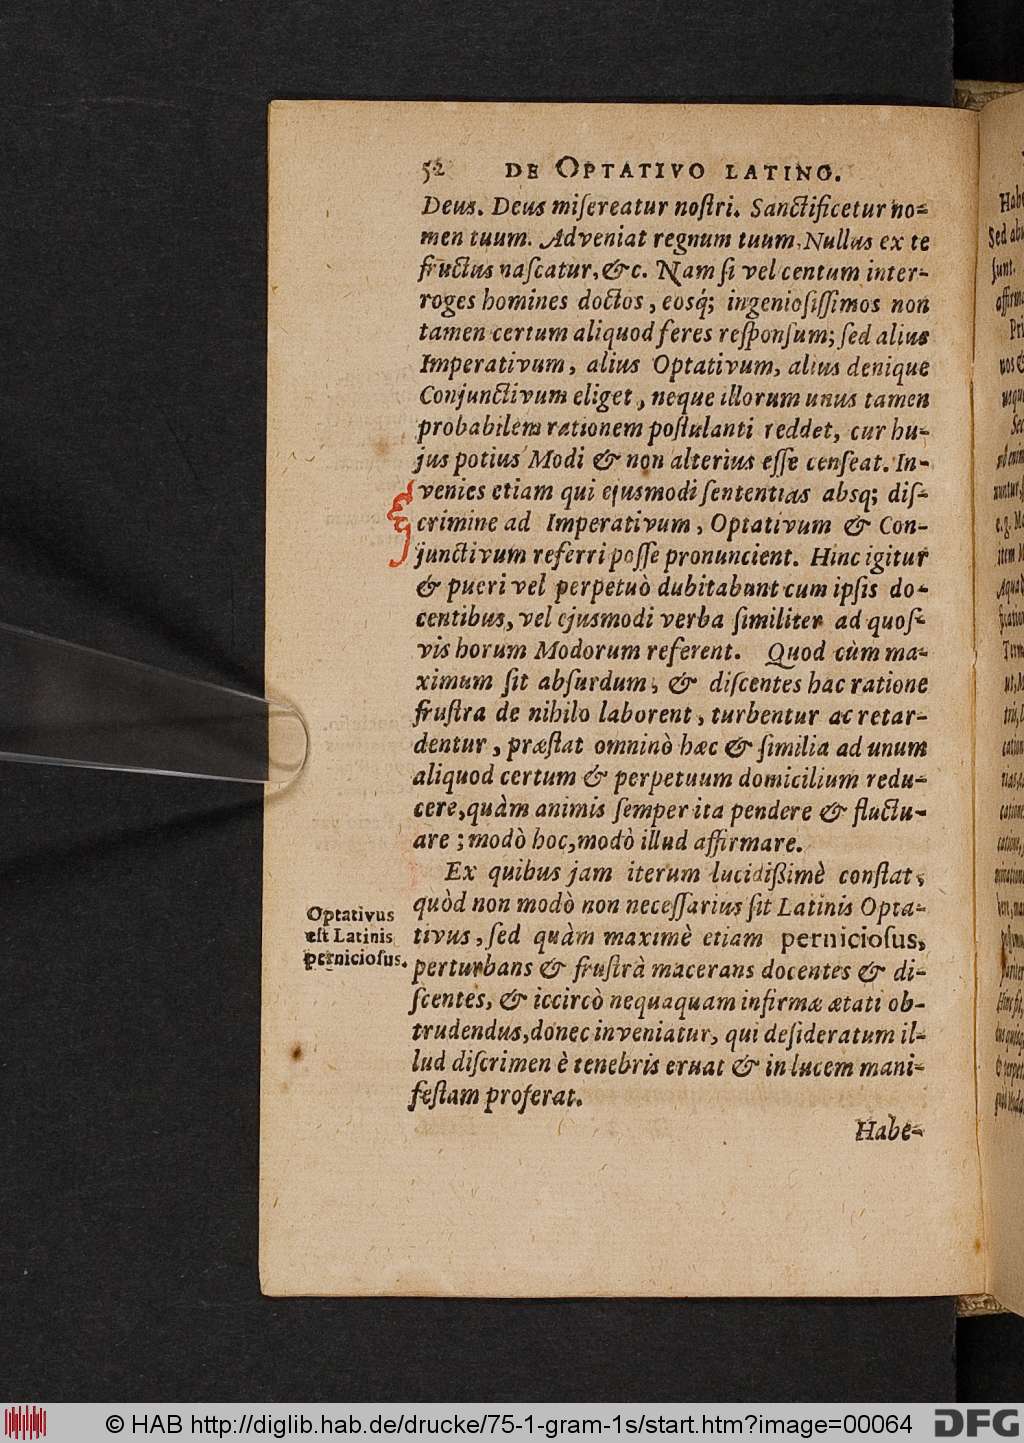 52 DE OPTATIVO LATINO.
Deus. Deus miſereatur noſtri. Sanctificetur no-
men tuum. Adveniat regnum tuum. Nullus ex te
fructus naſcatur, &c. Nam ſi vel centum inter-
roges homines doctos, eosq́; ingenioſiſſimos non
tamen certum aliquod feres reſponſum; ſed alius
Imperativum, alius Optativum, alius denique
Conjunctivum eliget, neque illorum unus tamen
probabilem rationem poſtulanti reddet, cur hu-
jus potius Modi & non alterius eſſe cenſeat. In-
venies etiam qui ejusmodi ſententias absq; diſ-
crimine ad Imperativum, Optativum & Con-
junctivum referri poſſe pronuncient. Hinc igitur
& pueri vel perpetuò dubitabunt cum ipſis do-
centibus, vel ejusmodi verba ſimiliter ad quoſ-
vis horum Modorum referent. Quod cùm ma-
ximum ſit abſurdum, & diſcentes hac ratione
fruſtra de nihilo laborent, turbentur ac retar-
dentur, præſtat omninò hæc & ſimilia ad unum
aliquod certum & perpetuum domicilium redu-
cere, quàm animis ſemper ita pendere & fluctu-
are; modò hoc, modò illud affirmare.
Ex quibus jam iterum lucidißimè conſtat,
quòd non modò non neceſſarius ſit Latinis Opta-
tivus, ſed quàm maximè etiam pernicioſus,
perturbans & fruſtrà macerans docentes & di-
ſcentes, & iccircò nequaquam infirmæ ætati ob-
trudendus, donec inveniatur, qui deſideratum il-
lud diſcrimen è tenebris eruat & in lucem mani-
feſtam proferat.
Habe-
Optativus
eſt Latinis
pernicioſus.
Habe
Sed ab
ſunt.
affirm
© HAB http://diglib.hab.de/drucke/75-1-gram-1s/start.htm?image=00064
DFG